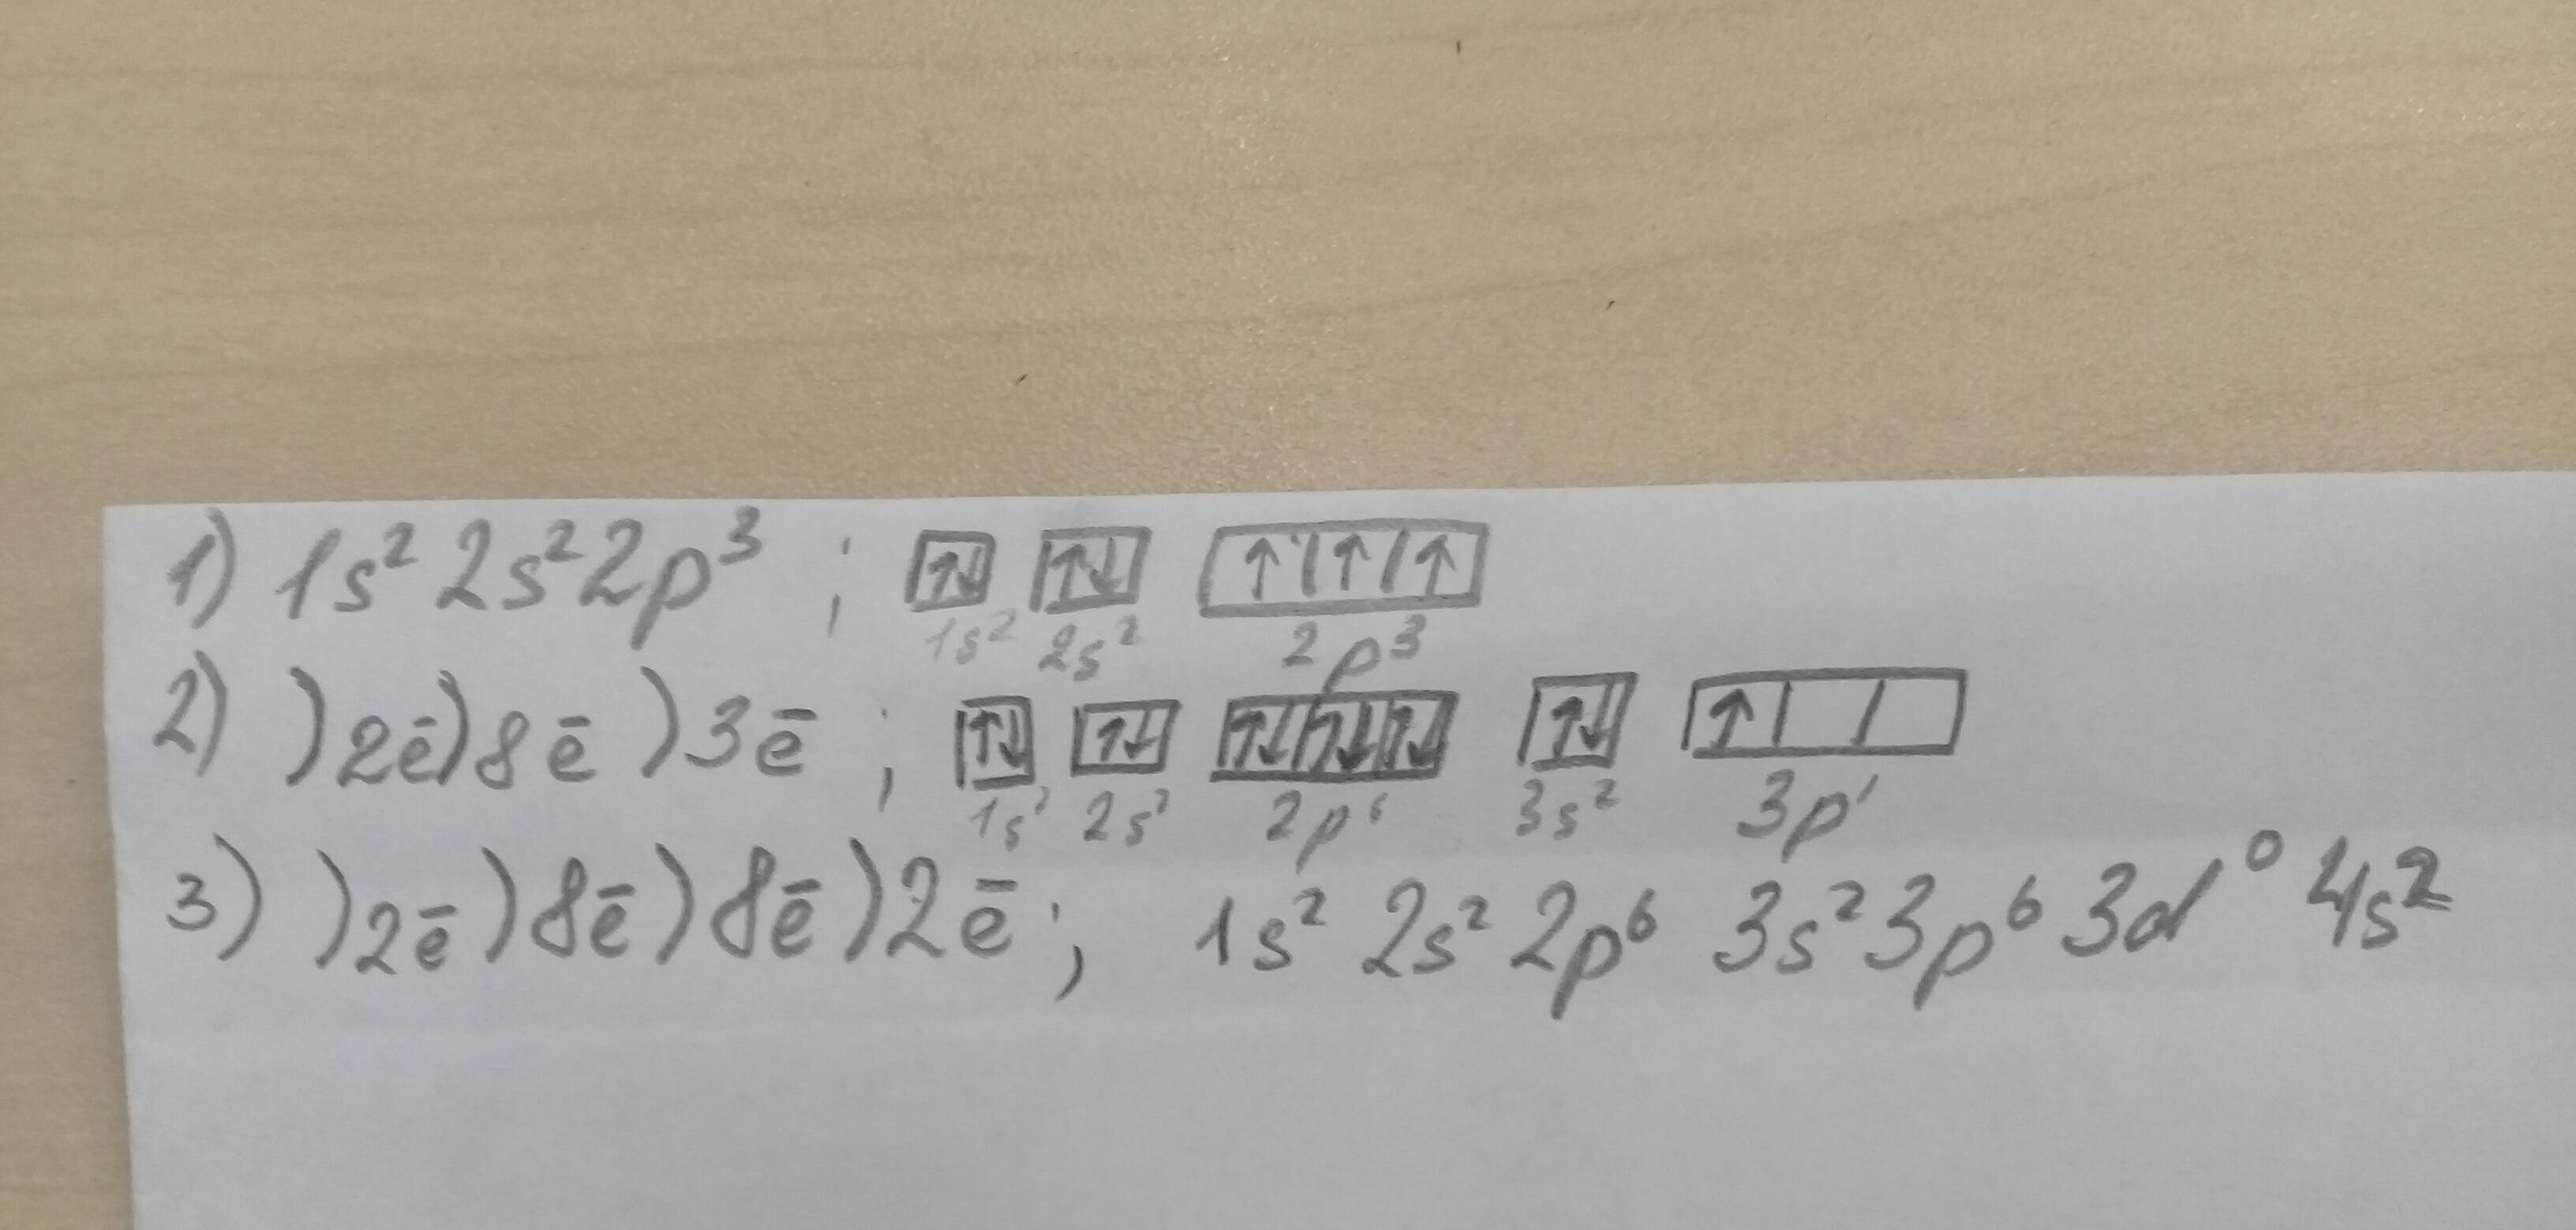 1) 1s² 2s² 2p³ ; ↑↓ ↑↓ ↑ ↑ ↑
1s² 2s² 2p³
2) )2ē)8ē )3ē ; ↑↓ ↑↓ ↑↓ ↑↓ ↑↓ ↑↓ ↑
1s² 2s² 2p⁶ 3s² 3p¹
3) )2ē )8ē )8ē )2ē ; 1s² 2s² 2p⁶ 3s² 3p⁶ 3d⁰ 4s²